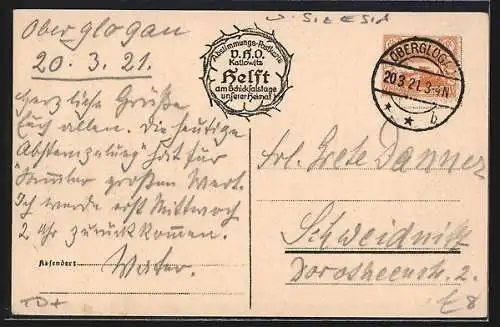 Oberglogau
20. 3. 21.
Herzliche Grüße
Euch allen. Die heutige
Abstempelung hat für
Sammler großen Wert.
Ich werde erst Mittwoch
2 Uhr zurückkommen.
Absender:
Vater.
Abstimmungs-Postkarte
V.H.O.
Kattowitz
Helft
am Schicksalstage
unserer Heimat
U. SILESIA
OBERGLOGAU
20.3.21.3-4N
* * b
Frl. Grete Danner
Schweidnitz
Dorotheenstr. 2.
£8